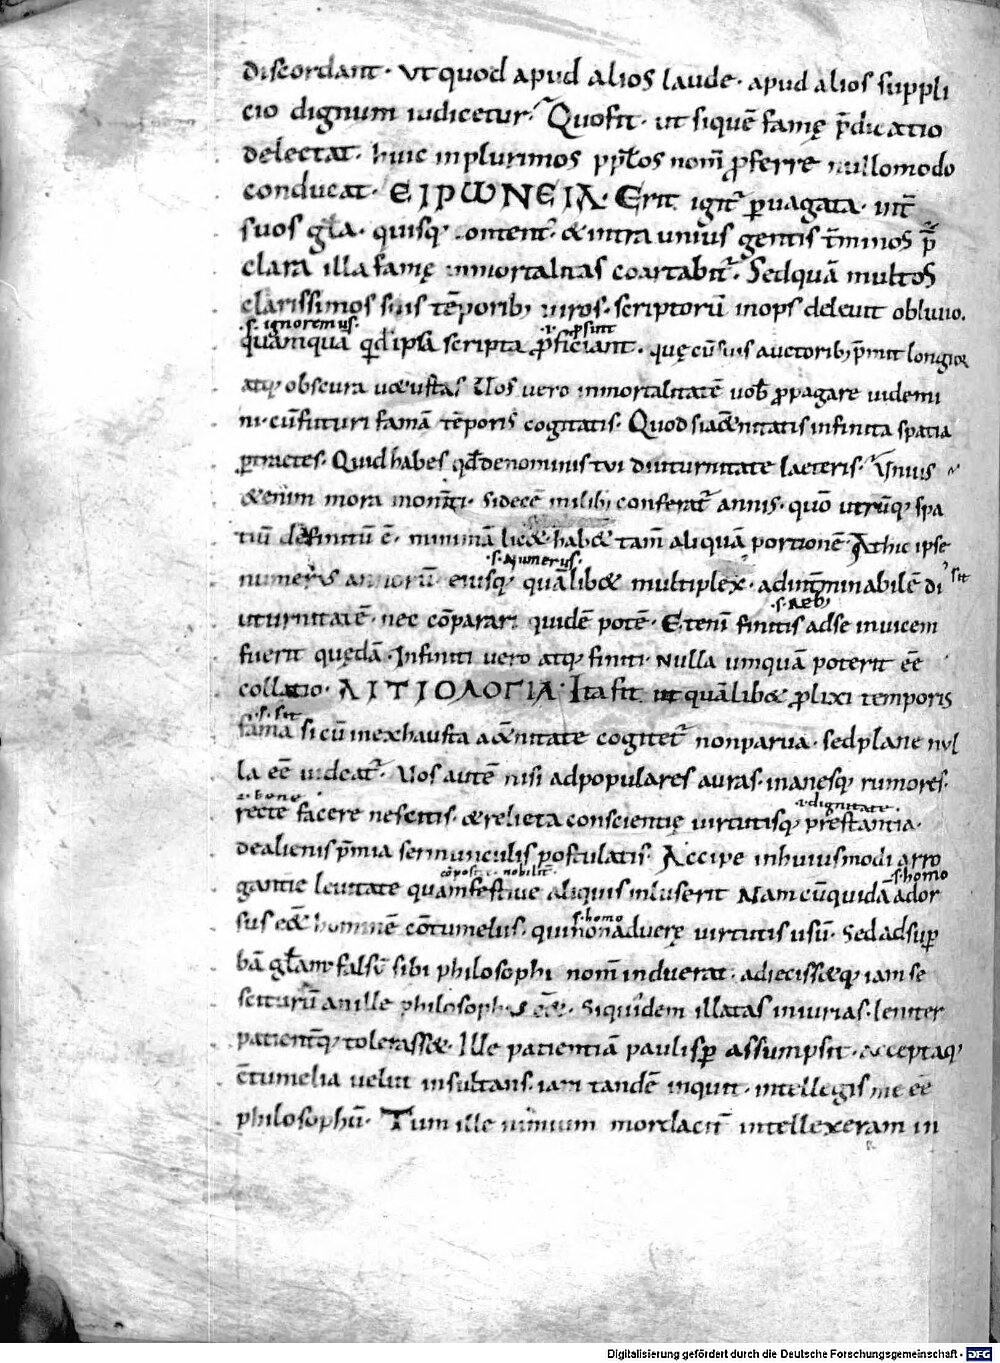 discordant · Ut quod apud alios laude · apud alios suppli
cio dignum iudicetur · Quo fit · ut siquē famę p̄dicatio
delectat · huic inplurimos pp̄los nom̄ ꝓferre nullomodo
conducat · ΕΙΡΩΝΕΙΑ · Erit igit̄ ꝑuagata · int̄
suos gła · quisq; content᾽ · & intra unius gentis t̄minos p̄
clara illa famę inmortalitas coartabit̄ · Sed quā multos
clarissimos suis tēporib; uiros · scriptorū inops deleuit obliuio.
·s· ignoremus· ·i· ꝓsint
quamquā qd̄ ipsa scripta ꝓficiant · quę cū suis auctorib; p̄mit longior
atq; obscura uetustas · Uos vero inmortalitatē uob̄ ꝓpagare uidemi
ni · cū futuri famā tēporis cogitatis · Quod si aet̄nitatis infinita spatia
ꝑtractes · Quid habes qd̄ de nominis tui diuturnitate laeteris · Unius
& enim mora mom̄ti · si decē milib; conferat̄ annis · quō utrūq; spa
tiū definitū ē · minimā lic& · hab& tam̄ aliquā portionē · At hic ipse
·s· numerus·
numerus annorū eiusq; quālib& multiplex · ad int̄minabilē di
sit
·s· reb;
uturnitatē · nec cōparari quidē potē · Etenī finitis ad se inuicem
fuerit quędā · Infiniti uero atq; finiti · nulla umquā poterit ēē
collatio · ΑΙΤΙΟΛΟΓΙΑ · Ita fit ut quālib& ꝓlixi temporis
·s· sit
fama si cū inexhausta aet̄nitate cogitet̄ non parua · sed plane nul
la ēē uideat̄ · Uos autē nisi ad populares auras · inanesq; rumores ·
·i· bene ·i· dignitate·
recte facere nescitis · & relicta conscientię uirtutisq; prestantia ·
de alienis p̄mia sermunculis postulatis · Accipe inhuiusmodi arro
cōposite · nobilit̄ ·s· homo
gantie leuitate quam festiue aliquis inluserit Nam cū quidā ador
·s· homo
sus e& hominē cōtumeliis · qui non ad uerę uirtutis usū · Sed ad supꝑ
bā głam · falsū sibi philosophi nom̄ induerat · adiecissetq; iam se
sciturū an ille philosophus e& · Siquidem illatas iniurias · leniter
patient̄q; tolerass& · Ille patientiā paulisꝑ assumpsit · acceptaq;
c̄tumelia uelut insultans · iam tandē inquit · intellegis me ēē
philosophū · Tum ille nimium mordacit̄ intellexeram in
Digitalisierung gefördert durch die Deutsche Forschungsgemeinschaft - DFG